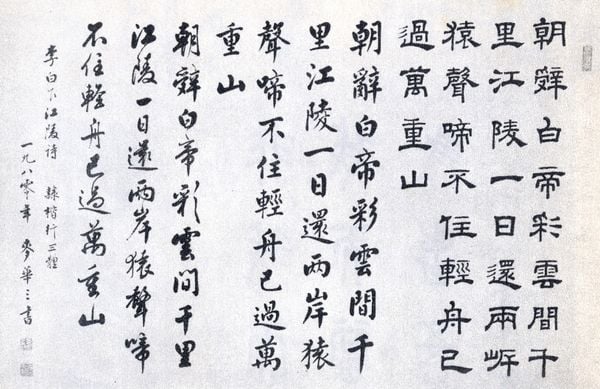 朝辤白帝彩雲間千
里江陵一日還兩岸
猿聲啼不住輕舟已
過萬重山
朝辭白帝彩雲間千
里江陵一日還两岸猿
聲啼不住輕舟已過萬
重山
朝辤白帝彩雲間千里
江陵一日還两岸猿聲啼
不住輕舟已過萬重山
李白下江陵诗 隸楷行三體
一九八零年 麥華三書